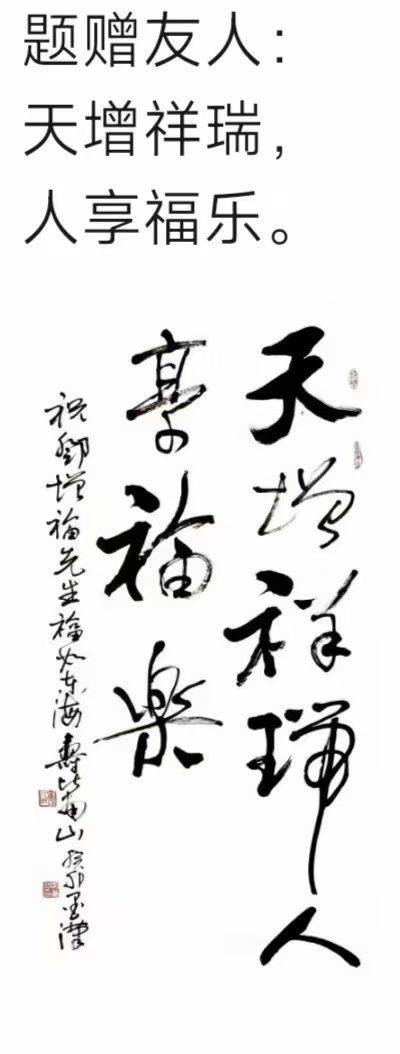 题赠友人：
天增祥瑞，
人享福乐。
天增祥瑞人
享福樂
祝鄧增福先生福如东海壽比南山癸卯墨津